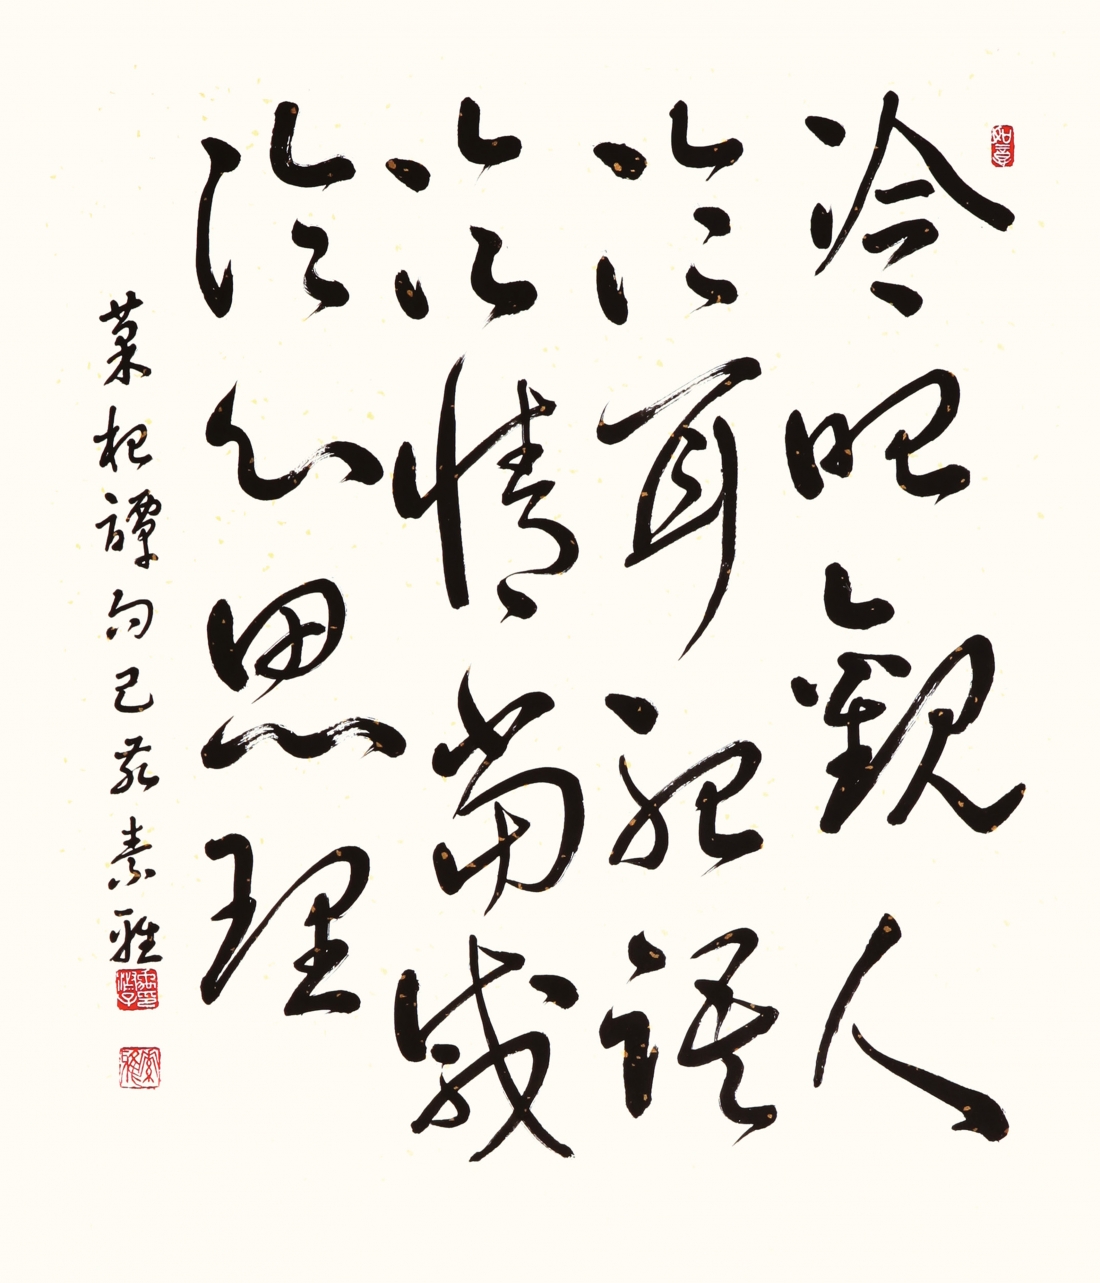 冷眼觀人
冷耳聽語
冷情當感
冷心思理
菜根譚句己亥素雅
如意
素雅